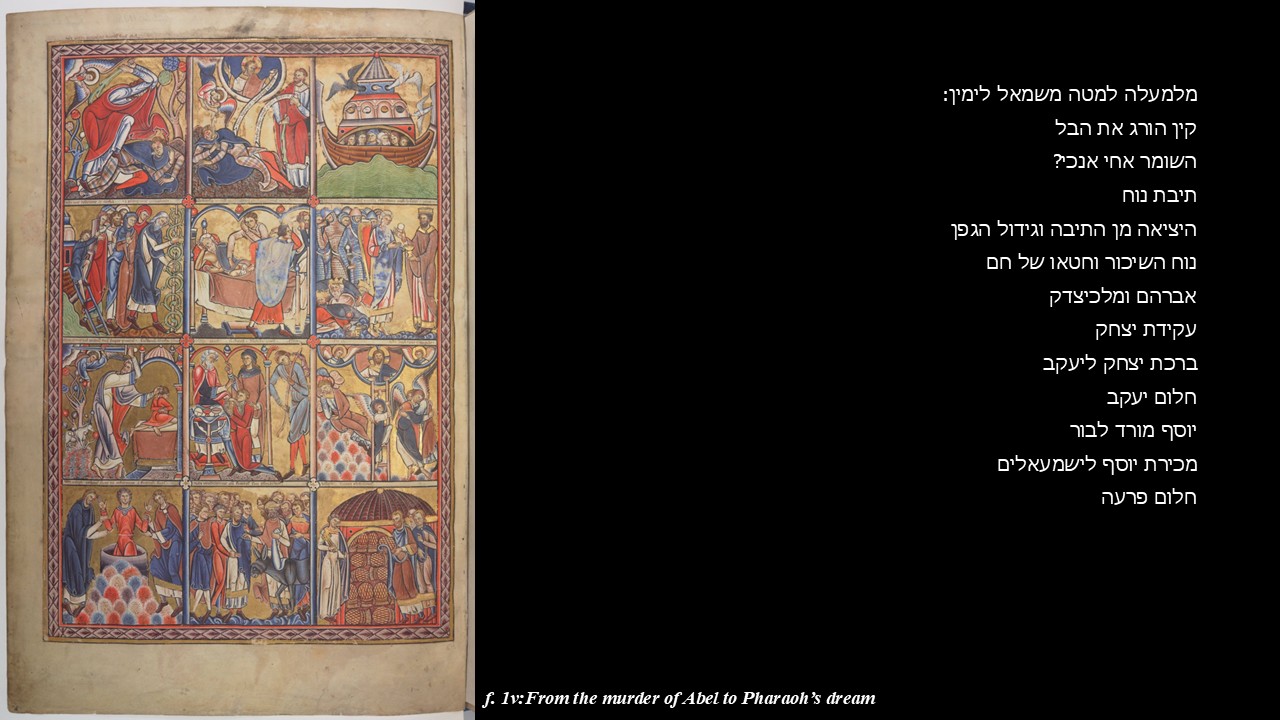 מלמעלה למטה משמאל לימין:
קין הורג את הבל
השומר אחי אנכי?
תיבת נוח
היציאה מן התיבה וגידול הגפן
נוח השיכור וחטאו של חם
אברהם ומלכיצדק
עקידת יצחק
ברכת יצחק ליעקב
חלום יעקב
יוסף מורד לבור
מכירת יוסף לישמעאלים
חלום פרעה
f. 1v:From the murder of Abel to Pharaoh’s dream